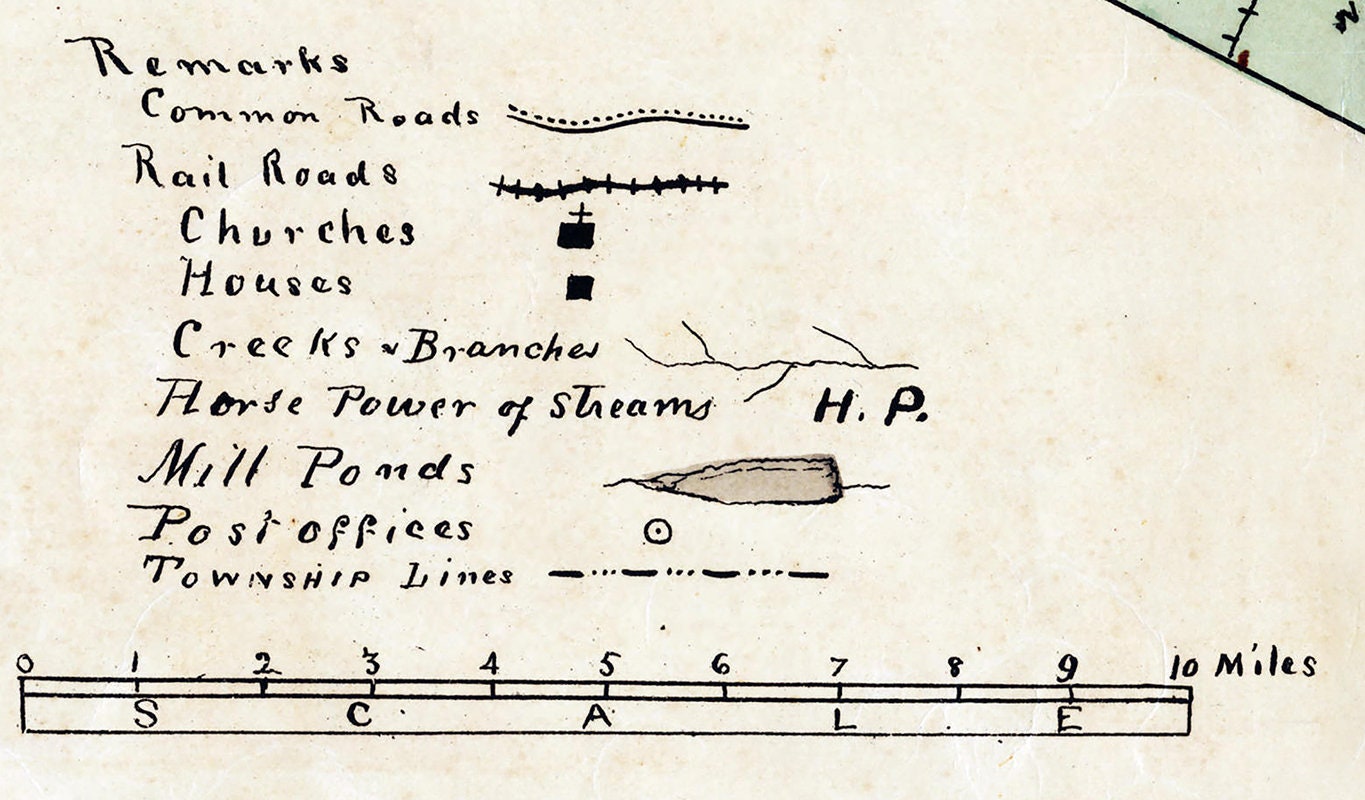 Remarks
Common Roads
Rail Roads
Churches
Houses
Creeks & Branches
Horse Power of Streams H. P.
Mill Ponds
Post offices
TOWNSHIP Lines
0 1 2 3 4 5 6 7 8 9 10 Miles
S C A L E